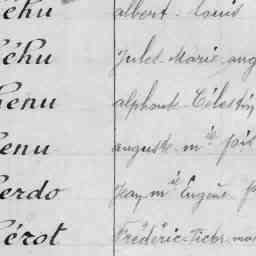 éhu albert Louis
éhu Jules Marie aug
enu alphonse Célestin
enu auguste m^ie
erdo Jean m^ie Eugène
érot Frédéric mar